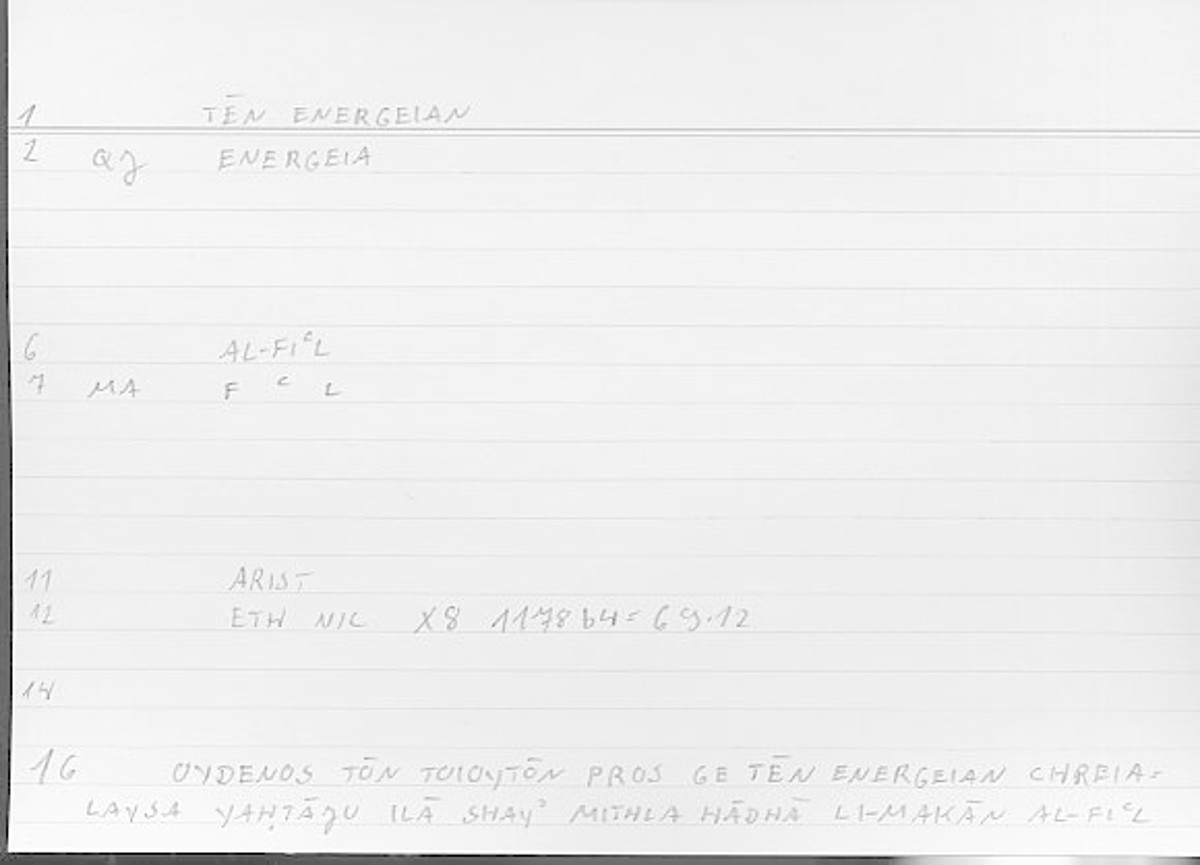 1 TĒN ENERGEIAN
2 QJ ENERGEIA
6 AL-FIᶜL
7 MA F ᶜ L
11 ARIST
12 ETH NIC X8 1178b4=69.12
14
16 OYDENOS TŌN TOIOYTŌN PROS GE TĒN ENERGEIAN CHREIA=
LAYSA YAḤTĀJU ILĀ SHAYʾ MITHLA HĀDHĀ LI-MAKĀN AL-FIᶜL